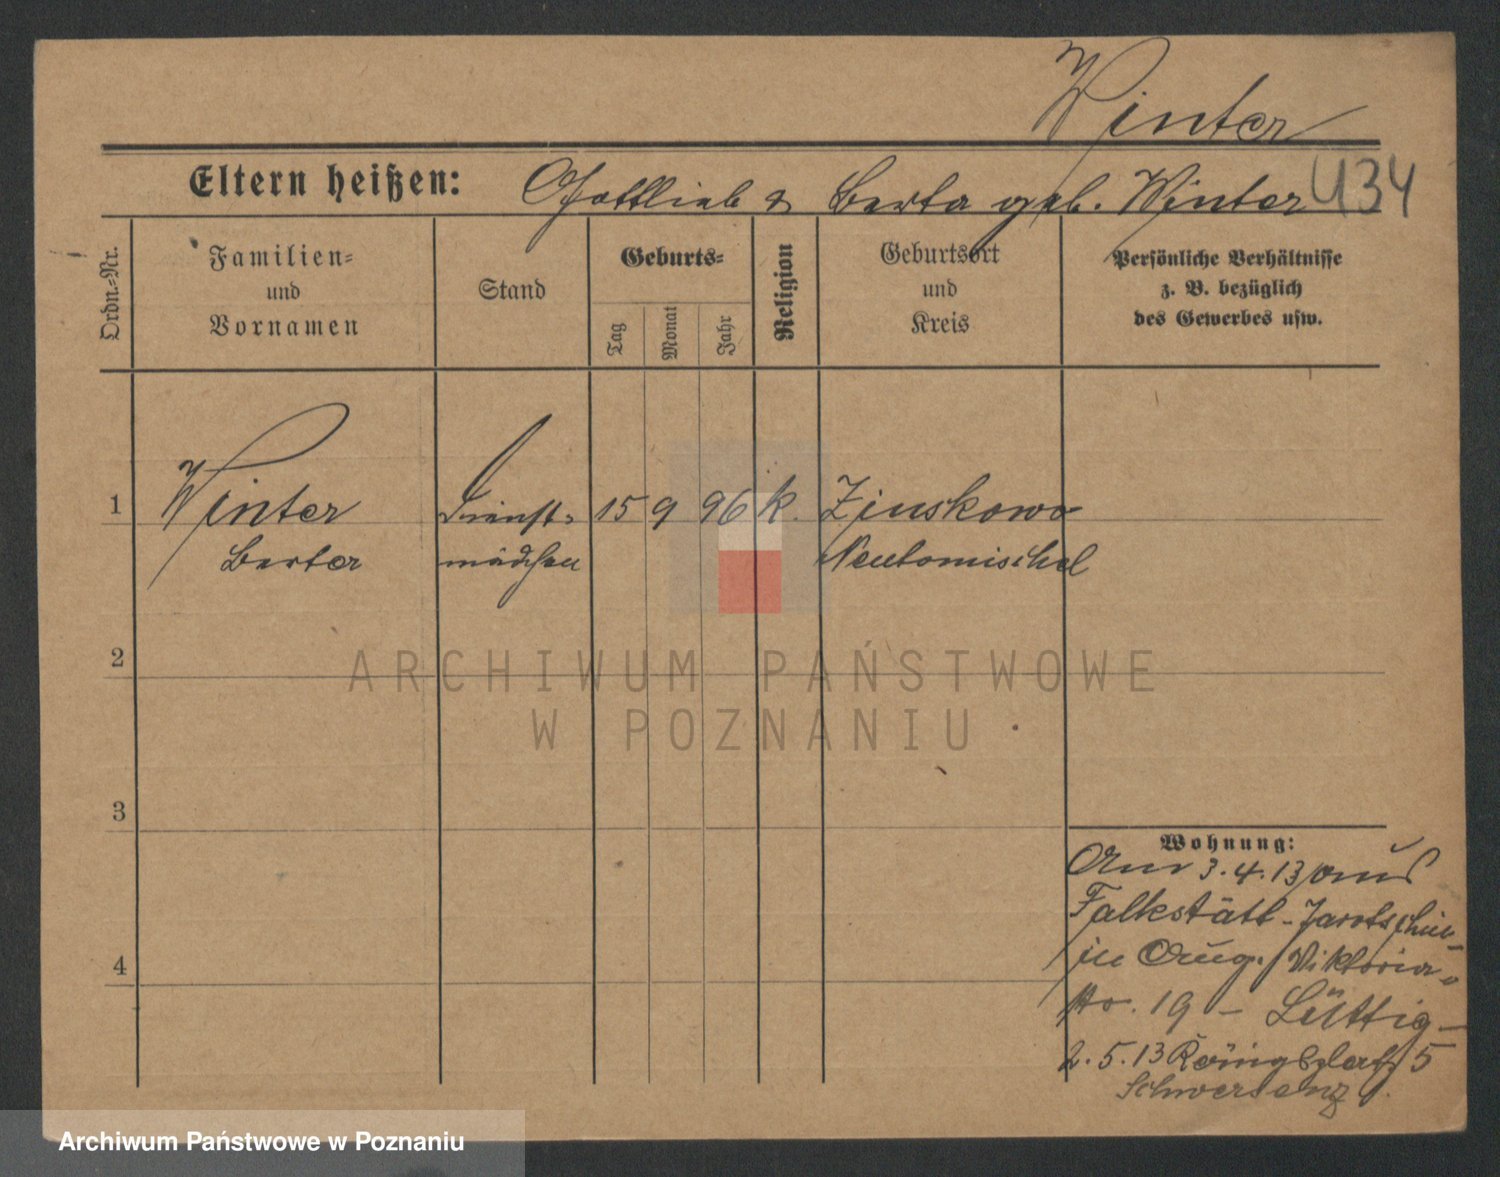 Winter
Eltern heißen: Gottlieb & Berta geb. Winter
434
Ordn.-Nr.
Familien-
und
Vornamen
Stand
Geburts-
Tag
Monat
Jahr
Religion
Geburtsort
und
Kreis
Persönliche Verhältnisse
z. B. bezüglich
des Gewerbes usw.
1 Winter Dienst- 15 9 96 k. Zinskowo
Berta mädchen Neutomischel
2
3
4
Wohnung:
Am 3.4.13 aus
Falkstätt - Jarotschin
in Viktoria-
19 - Lüttig -
2.5.13 5
Schwersenz
ARCHIWUM PAŃSTWOWE
W POZNANIU
Archiwum Państwowe w Poznaniu